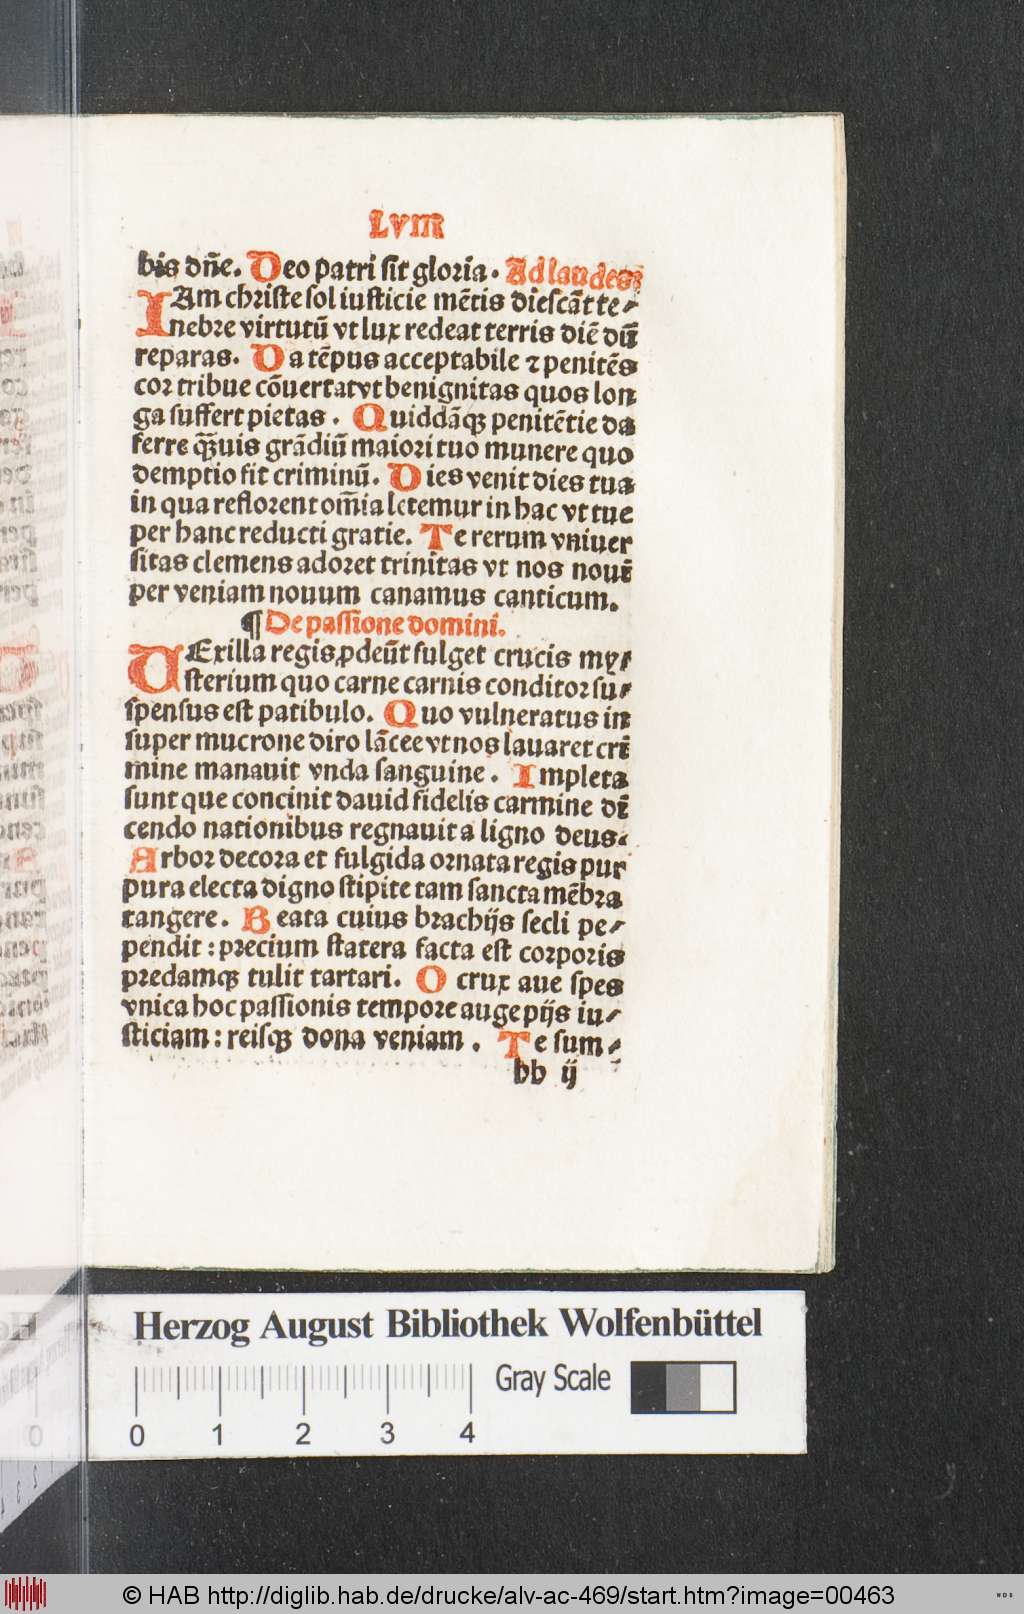 LVIII
bis dn̄e. Deo patri sit gloria. Ad laudes
IAm christe sol iusticie mētis diescāt te⸗
nebre virtutū vt lux redeat terris diē dū
reparas. Da tēpus acceptabile ⁊ penitēs
cor tribue cōuertat vt benignitas quos lon
ga suffert pietas. Quiddāqꝫ penitētie da
ferre qꝫ̄uis grādiū maiori tuo munere quo
demptio fit criminū. Dies venit dies tua
in qua reflorent om̄ia letemur in hac vt tue
per hanc reducti gratie. Te rerum vniuer
sitas clemens adoret trinitas vt nos nouī
per veniam nouum canamus canticum.
¶ De passione domini.
VExilla regis ꝓdeūt fulget crucis my⸗
sterium quo carne carnis conditor su⸗
spensus est patibulo. Quo vulneratus in
super mucrone diro lācee vt nos lauaret cri
mine manauit vnda sanguine. Impleta
sunt que concinit dauid fidelis carmine dī
cendo nationibus regnauit a ligno deus.
Arbor decora et fulgida ornata regis pur
pura electa digno stipite tam sancta mēbra
tangere. Beata cuius brachijs secli pe⸗
pendit: precium statera facta est corporis
predamqꝫ tulit tartari. O crux aue spes
vnica hoc passionis tempore auge pijs iu⸗
sticiam: reisqꝫ dona veniam. Te sum⸗
bb ij
Herzog August Bibliothek Wolfenbüttel
Gray Scale
0 1 2 3 4
© HAB http://diglib.hab.de/drucke/alv-ac-469/start.htm?image=00463